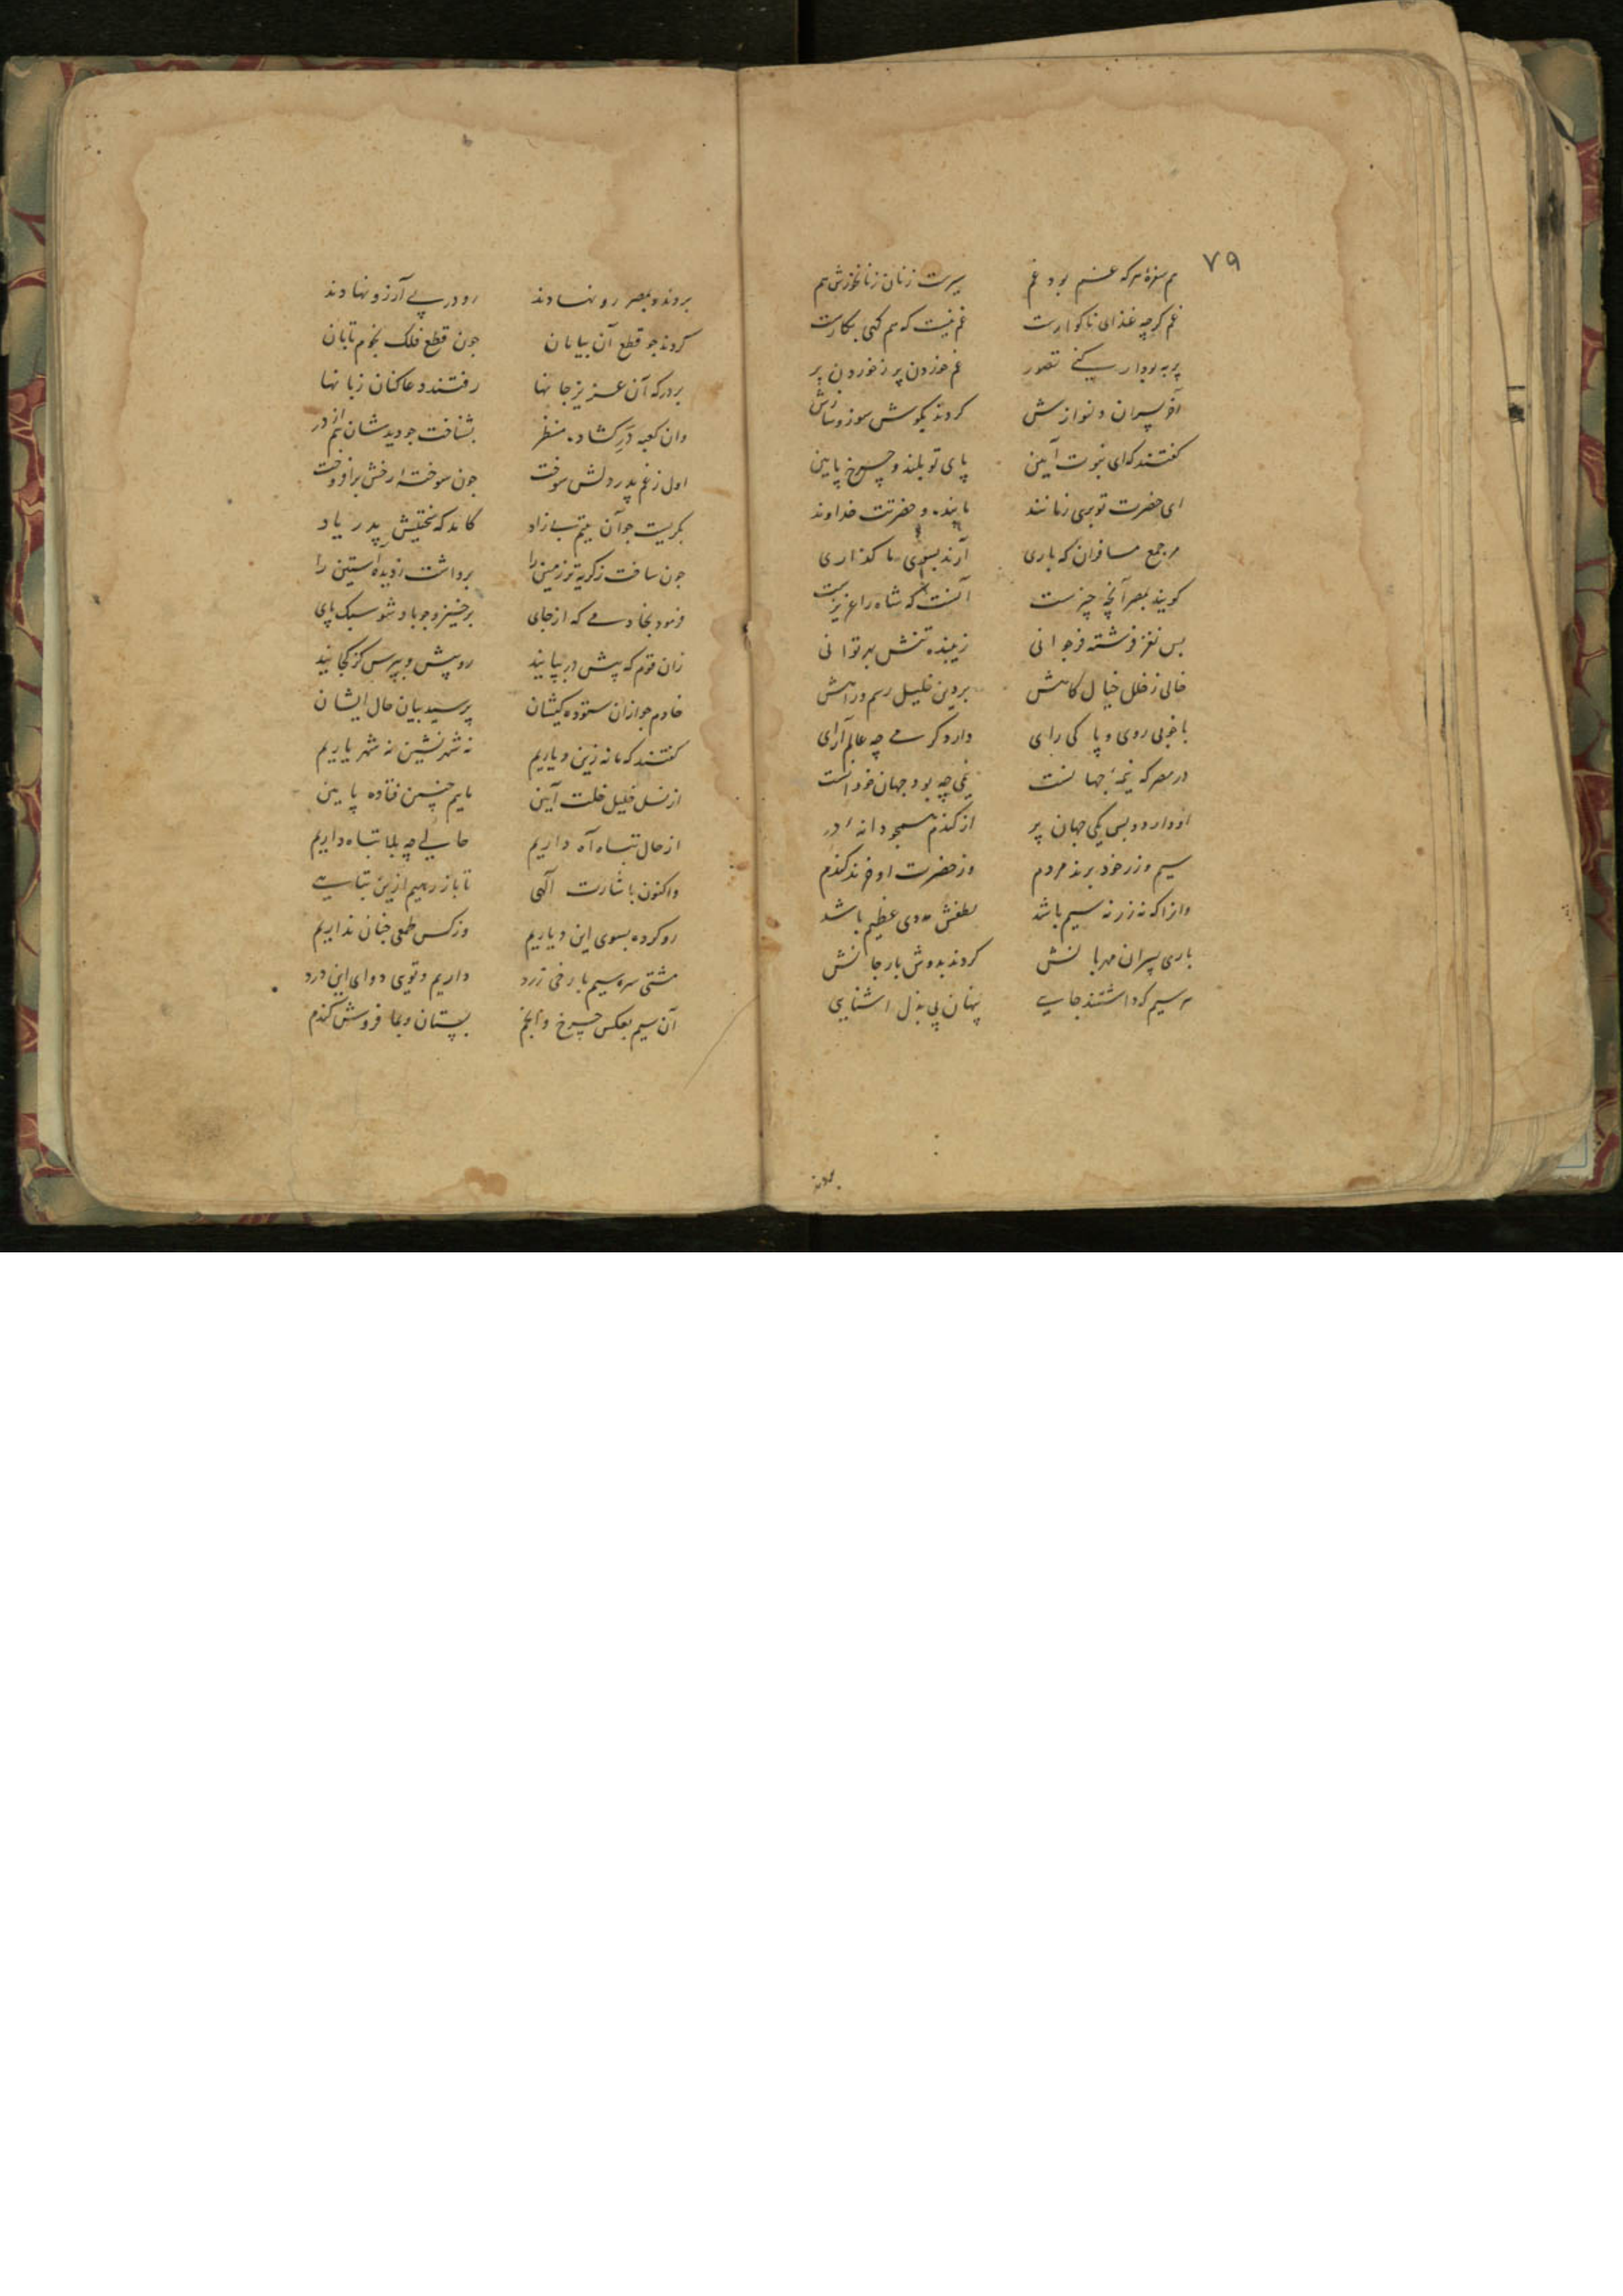 ۷۹
هم سفرهٔ هر که غم بود غم سیرست زنان زنانخورش هم
غم کرچه غذای ناکوارست غم نیست که هم کهی بکارست
پر به بود ار کنی تصور غم خوردن پر ز خوردن پر
آخر پسران دلنوازش کردند بکوش سوز و سازش
کفتند که ای نبوت آیین پای تو بلند و چرخ پایین
ای حضرت تو بری ز مانند ما بنده و حضرتت خداوند
مرجمع مسافران که باری آرند بسوی ما کذاری
کویند بمصر آنچه چیزست آنست که شاه را عزیزست
بس نغز فرشته فر جوانی زیبنده تنش بهر توانی
خالی ز خلل خیال کاهش بر دین خلیل رسم و راهش
با خوبی روی و پاکی رای دارد کرمی چه عالم آرای
در مصر که نیمهٔ جهانست نیمی چه بود جهان خود آنست
او دارد و بس یکی جهان پر از کندم همچو دانهٔ در
سیم و زر خود برند مردم وز حضرت او خرند کندم
وانرا که نه زر نه سیم باشد لطفش مددی عظیم باشد
باری پسران مهربانش کردند بدوش بار جانش
هر سیم که داشتند جایی پنهان پی بذل اشنایی
بردند
بردند و بمصر رو نهادند رو در پی آرزو نهادند
کردند جو قطع آن بیابان جون قطع فلک نجوم تابان
بر درکه آن عزیز جانها رفتند دعا کنان زبانها
وان کعبه در کشاده منظر بشناخت جو دیدشان هم از در
اول ز غم پدر دلش سوخت جون سوخته رخش برافروخت
بکریست جو آن یتیم بی زاد کاند که نختیش پدر یاد
جون ساخت ز کریه تر زمین را برداشت ز دیده آستین را
فرمود بخادمی که از جای برخیز و جو باد شو سبک پای
زان قوم که پیش در بپایند رو پیش و بپرس کز کجایند
خادم جو ازان ستوده کیشان پرسید بیان حال ایشان
کفتند که ما نه زین دیاریم نه شهرنشین نه شهریاریم
از نسل خلیل خلت آیین ماییم چنین فتاده پایین
از حال تباه آه داریم حالی چه بلا تباه داریم
واکنون باشارت الهی تا باز رهیم ازین تباهی
رو کرده بسوی این دیاریم وز کس طمعی جنان نداریم
مشتی سره سیم با رخی زرد داریم و تویی دوای این درد
آن سیم بعکس چرخ و انجم بستان و بما فروش کندم